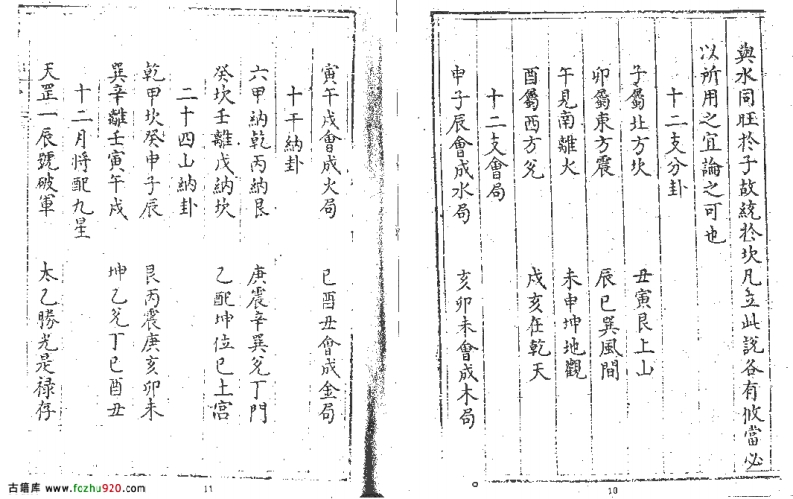 與水同旺於子故統於坎凡立此說各有攸當必
以所用之宜論之可也
十二支分卦
子屬北方坎　丑寅艮上山
卯屬東方震　辰巳巽風間
午見南離火　未申坤地觀
酉屬西方兌　戌亥在乾天
十二支會局
申子辰會成水局　亥卯未會成木局
10
寅午戌會成火局　巳酉丑會成金局
十干納卦
六甲納乾丙納艮　庚震辛巽兌丁門
癸坎壬離戊納坎　乙配坤位己土宮
二十四山納卦
乾甲坎癸申子辰　艮丙震庚亥卯未
巽辛離壬寅午戌　坤乙兌丁巳酉丑
十二月將配九星
天罡一辰號破軍　太乙勝光是祿存
11
古籍库 www.fozhu920.com